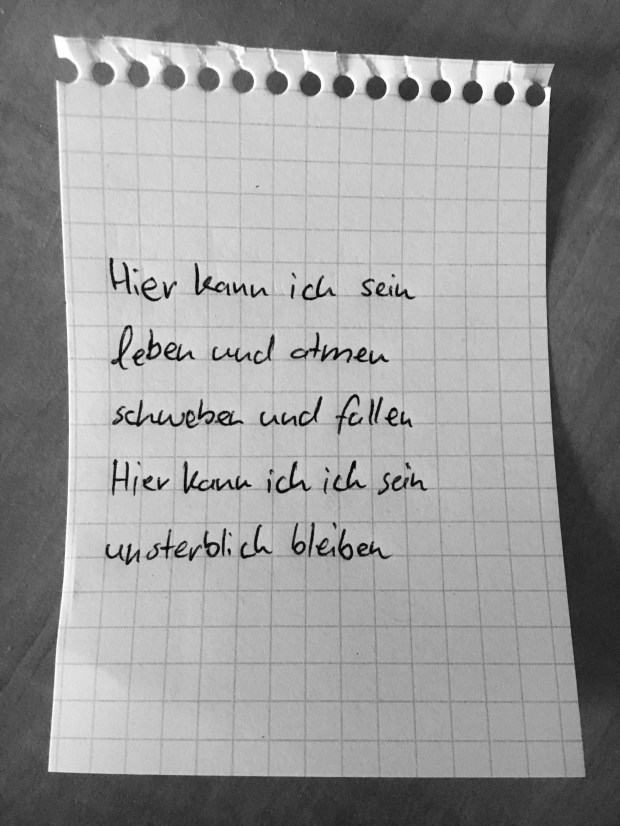 Hier kann ich sein
leben und atmen
schweben und fallen
Hier kann ich ich sein
unsterblich bleiben